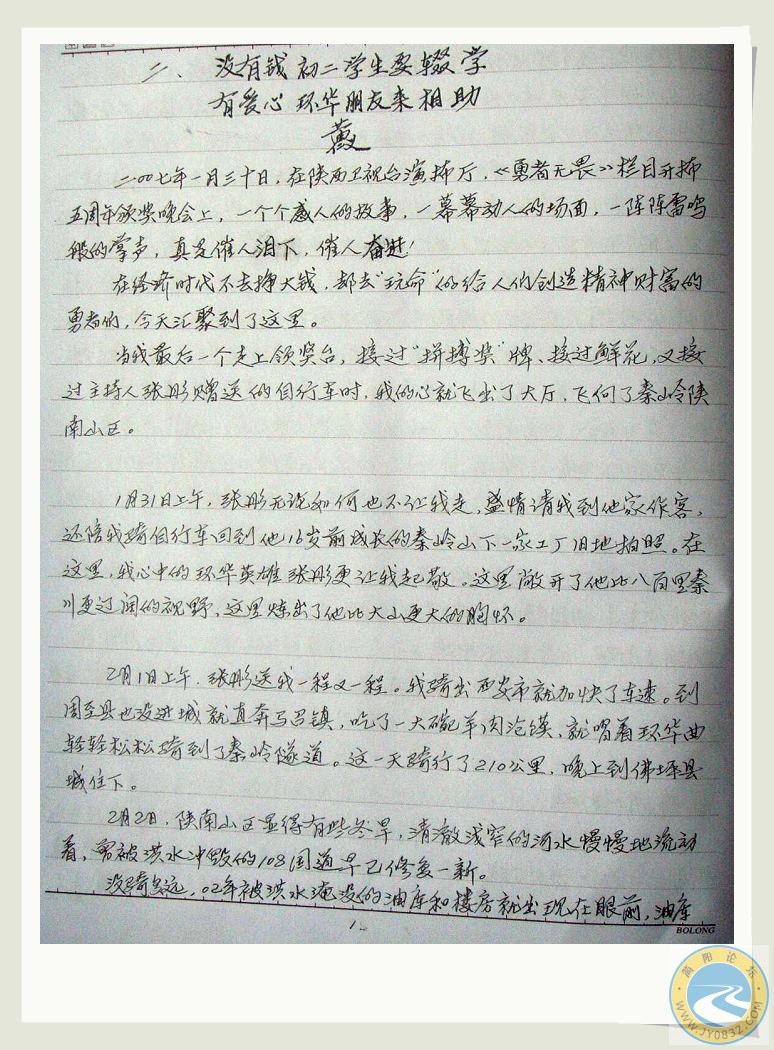 二、没有钱初二学生要辍学
有爱心 环华朋友来相助
二〇〇七年一月三十日，在陕西卫视台演播厅，《勇者无畏》栏目开播
五周年颁奖晚会上，一个个感人的故事，一幕幕动人的场面，一阵阵雷鸣
般的掌声，真是催人泪下，催人奋进！
在经济时代不去挣大钱，却去“玩命”的给人们创造精神财富的
勇者们，今天汇聚到了这里。
当我最后一个走上领奖台，接过“拼搏奖”牌、接过鲜花，又接
过主持人张彤赠送的自行车时，我的心就飞出了大厅，飞向了秦岭陕
南山区。
1月31日上午，张彤无论如何也不让我走，盛情请我到他家作客，
还陪我骑自行车回到他16岁前成长的秦岭山下一家工厂旧地拍照。在
这里，我心中的环华英雄张彤更让我起敬。这里敞开了他比八百里秦
川更辽阔的视野，这里炼出了他比大山更大的胸怀。
2月1日上午，张彤送我一程又一程。我骑出西安市就加快了车速。到
周至县也没进城就直奔马召镇，吃了一大碗羊肉泡馍，就唱着环华曲
轻轻松松骑到了秦岭隧道。这一天骑行了210公里，晚上到佛坪县
城住下。
2月2日，陕南山区显得有些冬旱，清澈浅窄的河水慢慢地流动
着，曾被洪水冲毁的108国道早已修复一新。
没骑多远，02年被洪水淹没的油库和楼房就出现在眼前，油库
BOLONG
简阳论坛
WWW.JY0832.COM